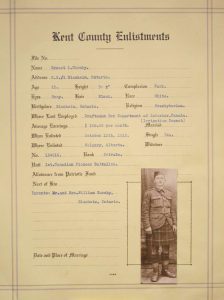 Kent County Enlistments
File No.
Name Ernest L.Hornby.
Address R.R.#1.Blenheim, Ontario.
Age Height Complexion Dark.
Eyes Hair Black. Race White.
Birthplace Blenheim, Ontario. Religion Presbyterian.
Where Last Employed Draftsman for Department of Interior,Canada.
Average Earnings per month. Married
Date Enlisted October 12th, Single Yes.
Where Enlisted Calgary, Alberta. Widower
No. Rank Private.
Unit Canadian Pioneer Battalion.
Allowance from Patriotic Fund
Next of Kin
Parents: Mr.and Mrs.William Hornby,
Blenheim, Ontario.
Date and Place of Marriage